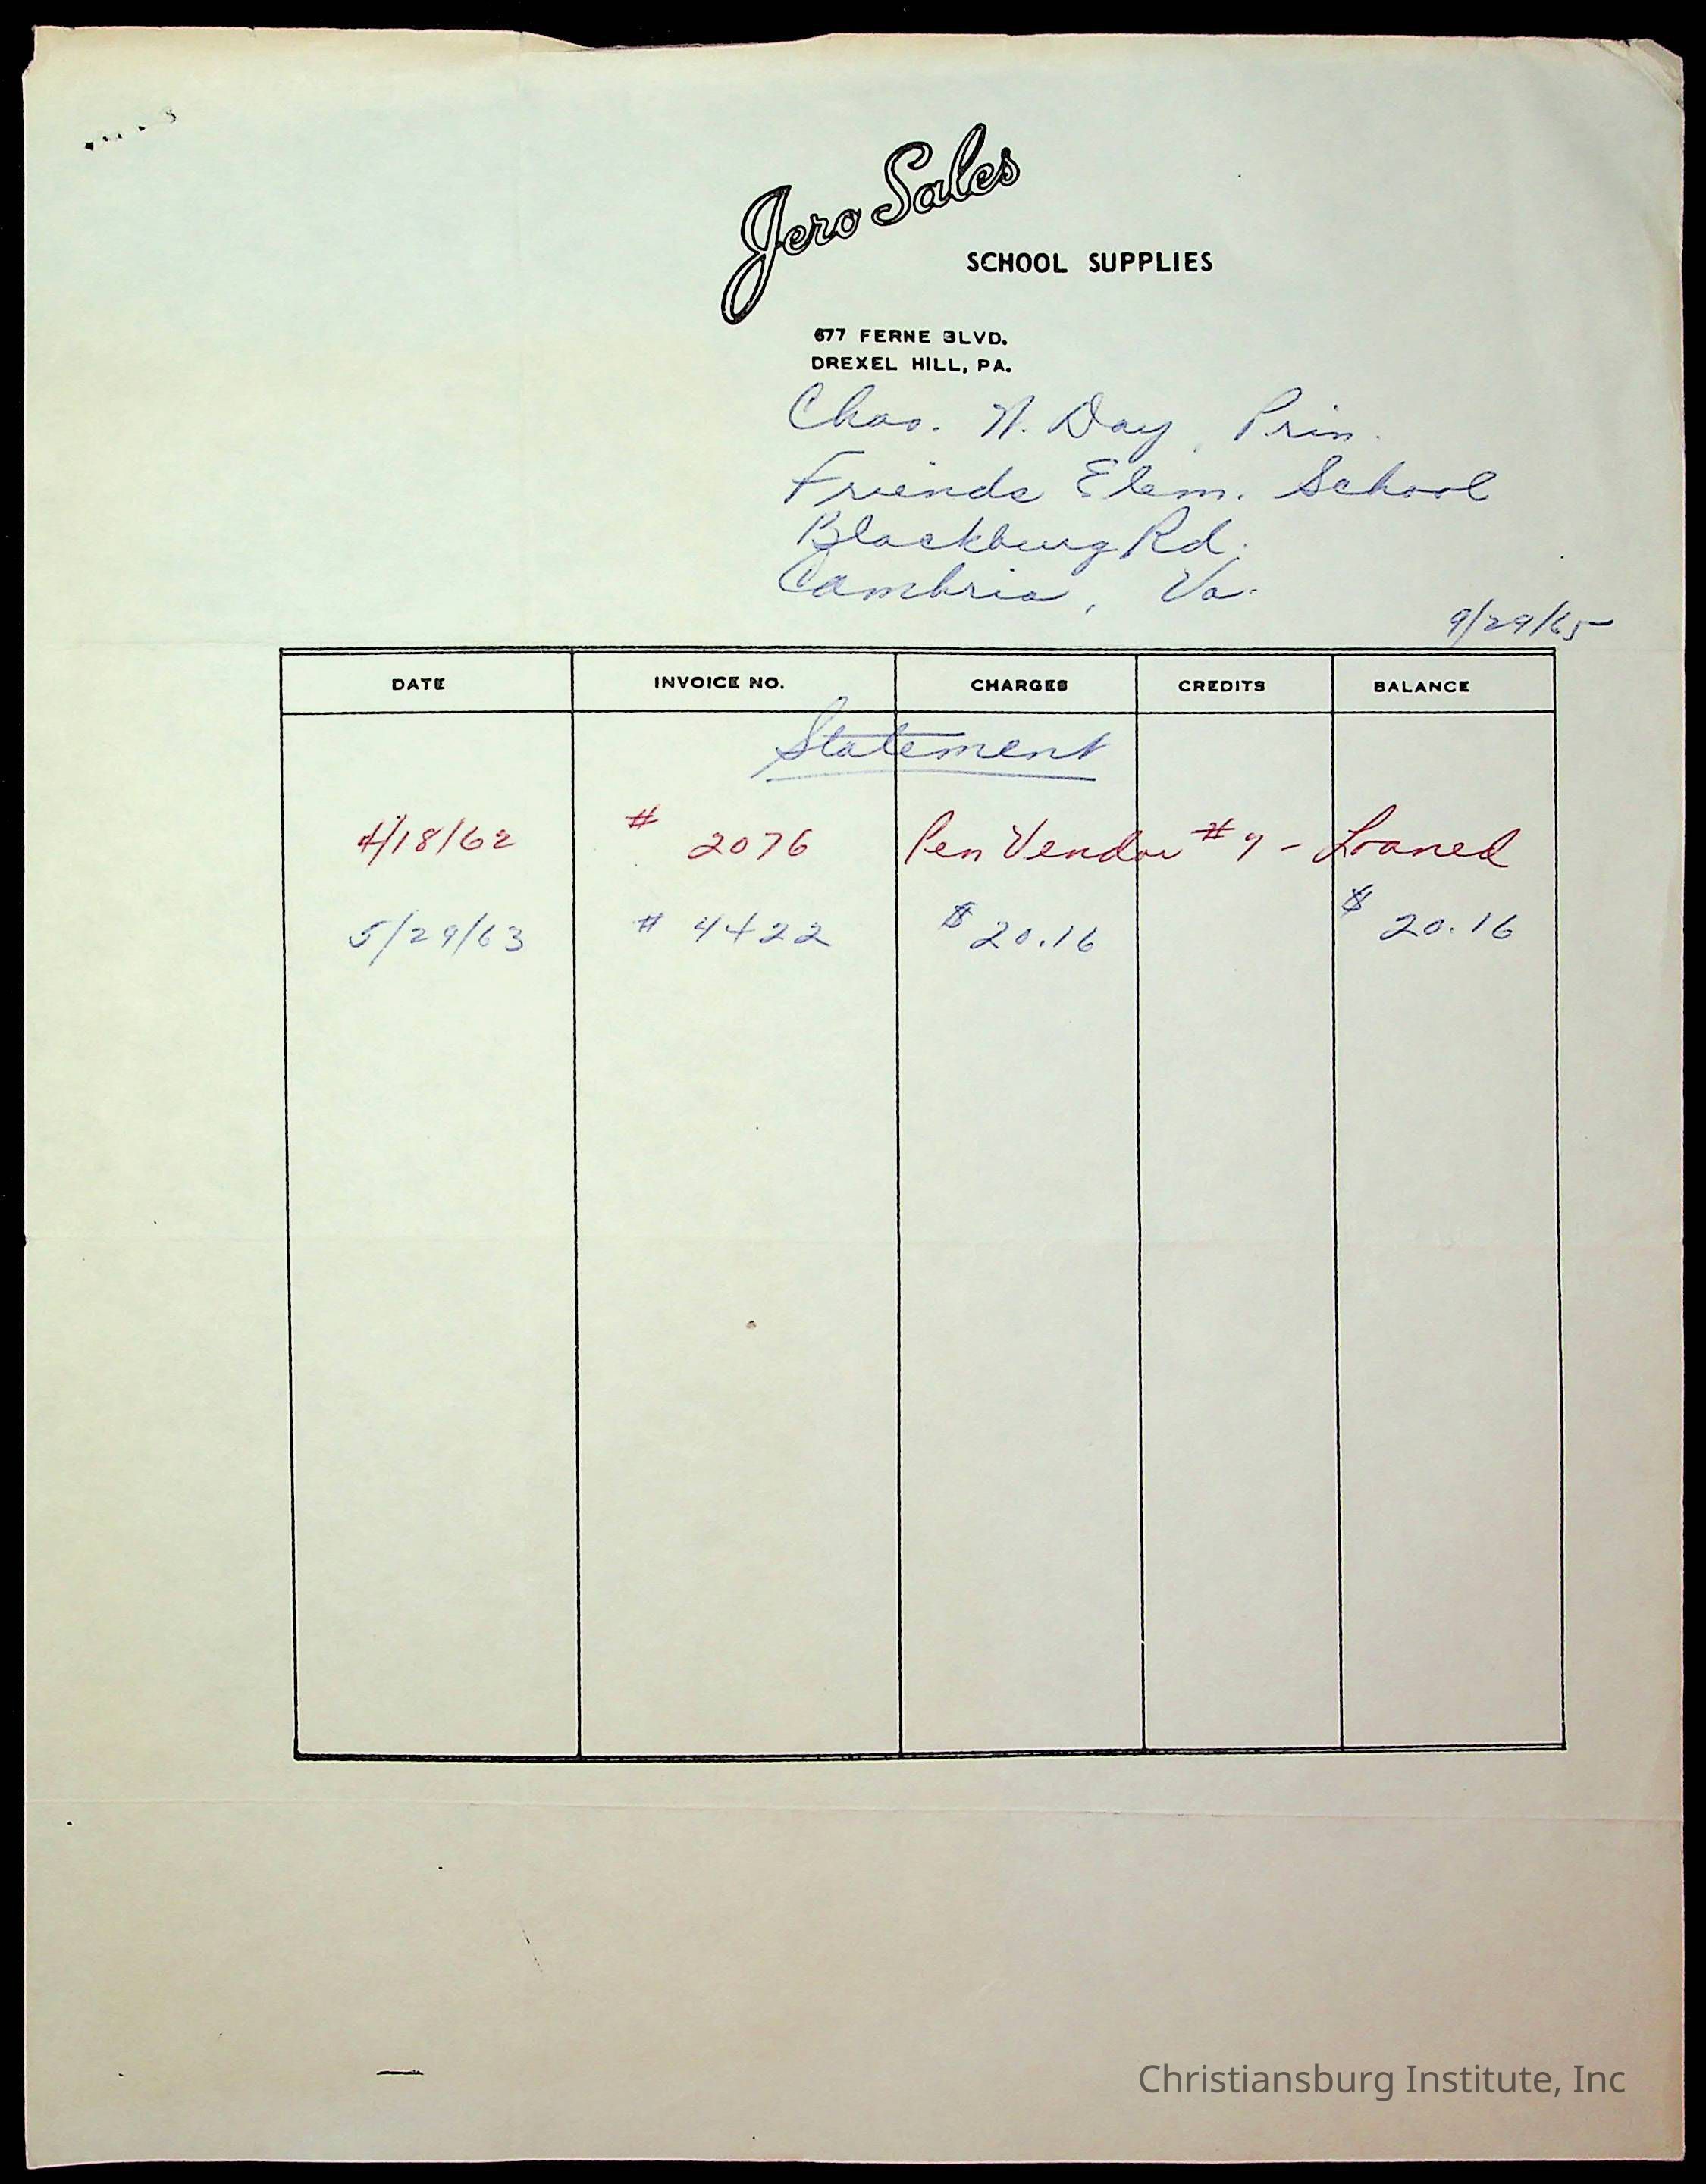 Jero Sales
SCHOOL SUPPLIES
677 FERNE BLVD.
DREXEL HILL, PA.
Chas. N. Day, Prin.
Friends Elem. School
Blackburg Rd.
Cambria, Va.
9/29/65
DATE INVOICE NO. CHARGES CREDITS BALANCE
Statement
4/18/62 # 2076 Pen Vendor # 9 - Loaned
5/29/63 # 4422 $20.16 $20.16
Christiansburg Institute, Inc